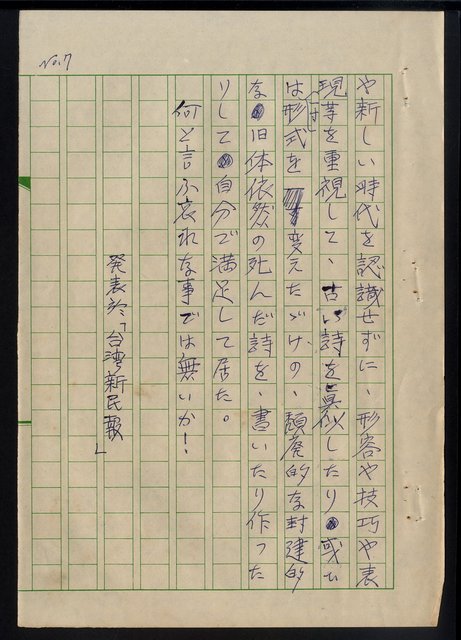 No.7
や新しい時代を認識せずに、形容や技巧や表
現等を重視して、古い詩を真似したり或ひ
は形式を変えたゞけの、頽廃的な封建的
な旧体依然の死んだ詩を、書いたり作った
りして自分で満足して居た。
何と言ふ哀れな事では無いか！
発表於「台湾新民報」